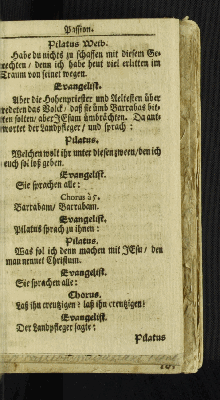 Passion.
Pilatus Weib.
Habe du nichts zu schaffen mit diesem Ge-
rechten / denn ich habe heut viel erlitten im
Traum von seinet wegen.
Evangelist.
Aber die Hohenpriester und Aeltesten über
redeten das Volck / daß sie ümb Barrabas bit-
ten solten / aber JEsum ümbrächten. Da ant-
wortet der Landpfleger / und sprach :
Pilatus.
Welchen wolt ihr unter diesen zween / den ich
euch sol loß geben.
Evangelist.
Sie sprachen alle :
Chorus à 5.
Barrabam / Barrabam.
Evangelist.
Pilatus sprach zu ihnen :
Pilatus.
Was sol ich denn machen mit JEsu / den
man nennet Christum.
Evangelist.
Sie sprachen alle :
Chorus.
Laß ihn creutzigen ! laß ihn creutzigen !
Evangelist.
Der Landpfleger sagte :
Pilatus